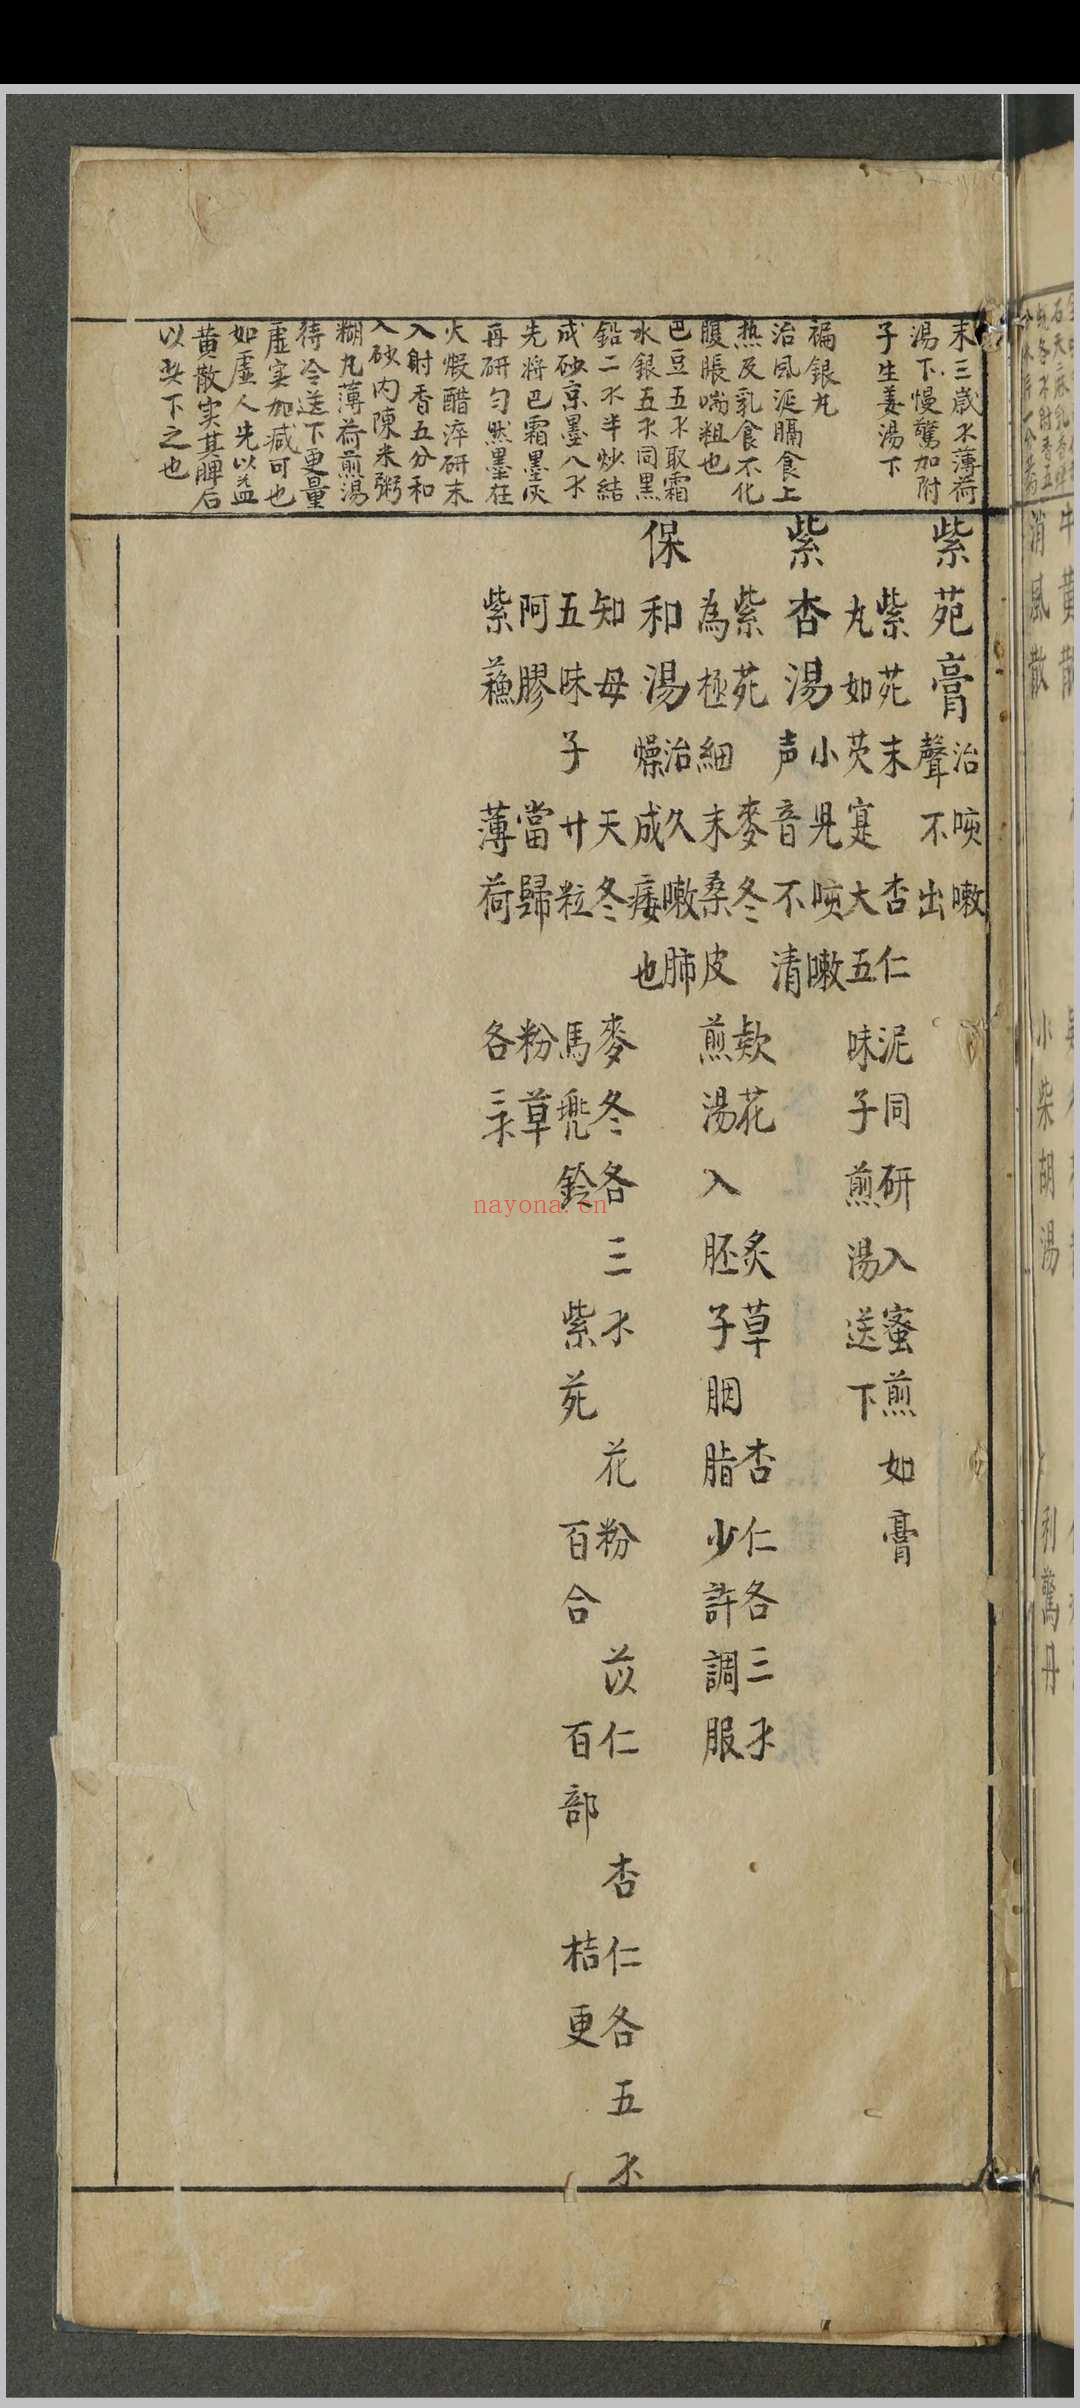 末三歲水薄荷
湯下慢驚加附
子生姜湯下
褊銀丸
治風涎膈食上
热及乳食不化
腹脹喘粗也
巴豆五水取霜
水銀五水同黑
鉛二水半炒結
成砂京墨八水
先將巴霜墨灰
再研匀然墨在
火煅醋淬研末
入射香五分和
入砂内陳米粥
糊丸薄荷煎湯
待冷送下更量
虛实加減可也
如虛人先以益
黃散实其脾后
以兴下之也
紫苑膏
治咳嗽
聲不出
紫苑末 杏仁泥同研入蜜煎如膏
丸如芡寔大五味子煎湯送下
紫杏湯
小児咳嗽
声音不清
紫苑 麥冬 欵花 炙草 杏仁各三水
為極細末桑皮煎湯入胚子胭脂少許調服
保和湯
治久嗽肺
燥成痿也
知母 天冬 麥冬各三水 花粉 苡仁 杏仁各五水
五味子廿粒 馬兜鈴 紫苑 百合 百部 桔更
阿膠 當歸 粉草
紫蘓 薄荷 各三水
消風散
小柴胡湯
利驚丹
nayona.cn